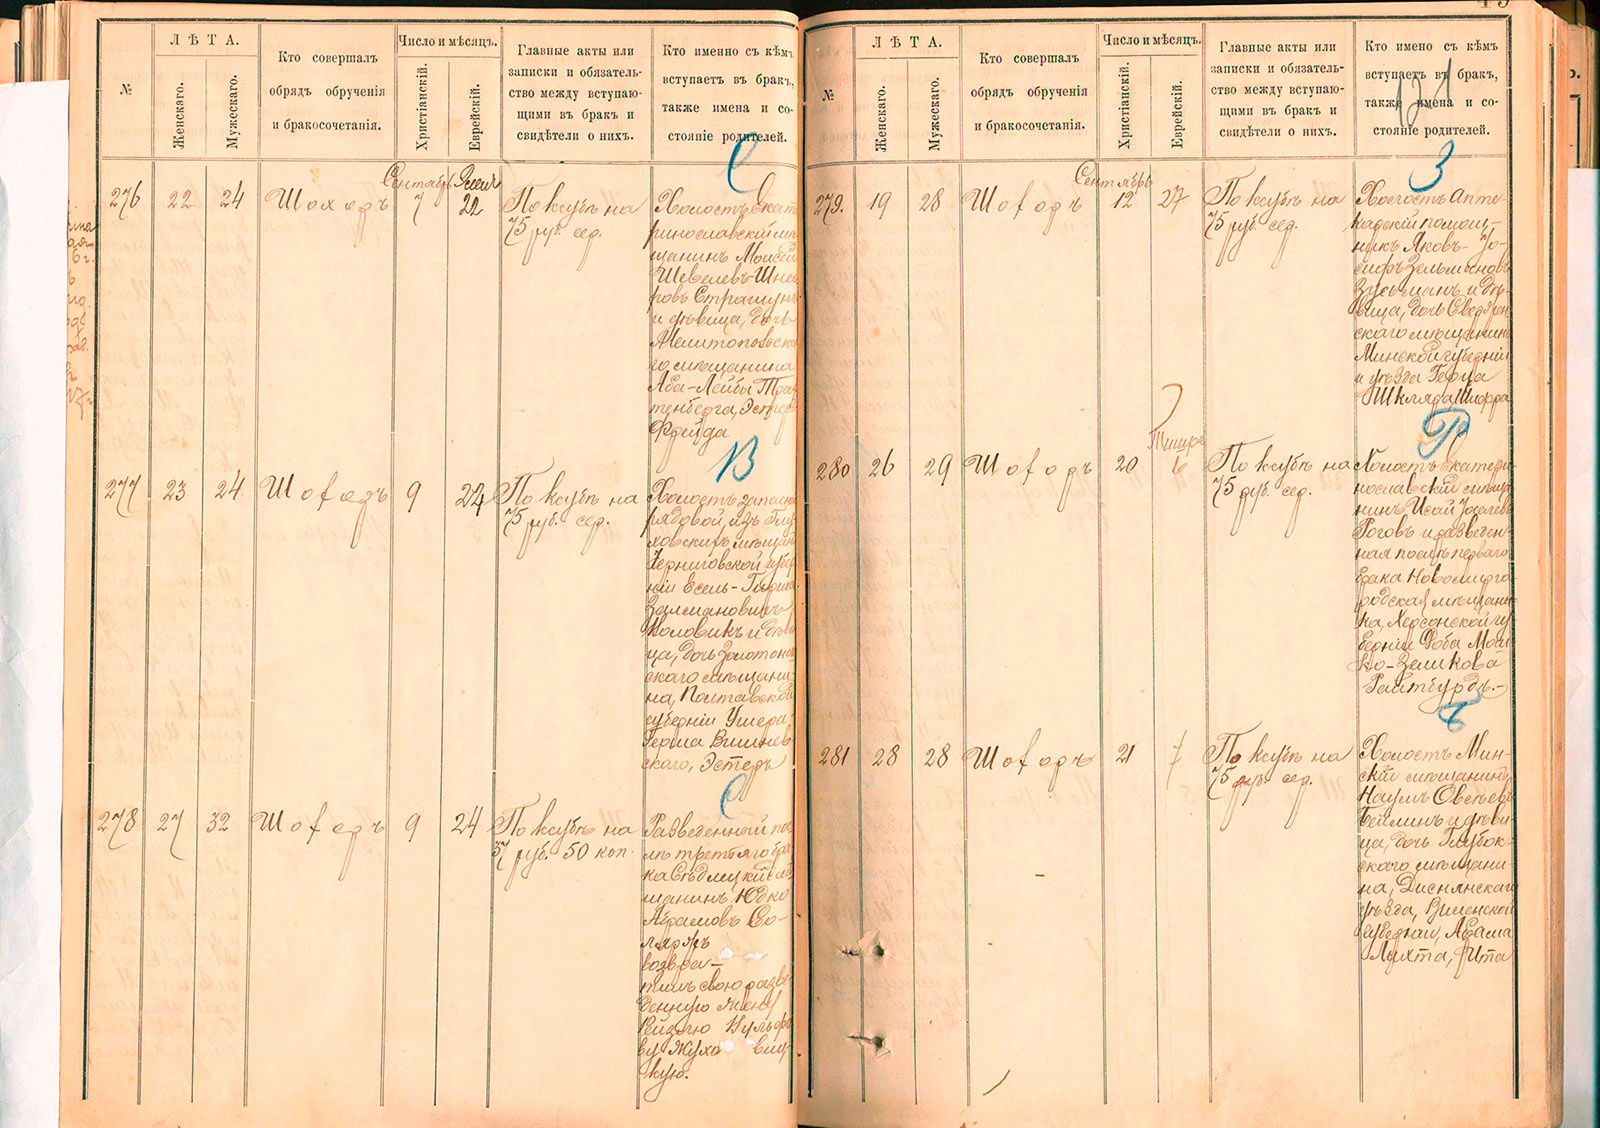 №
ЛѢТА.
Женскаго.
Мужескаго.
Кто совершалъ
обрядъ обрученія
и бракосочетанія.
Число и мѣсяцъ.
Христіанскій.
Еврейскій.
Главные акты или
записки и обязатель-
ство между вступаю-
щими въ бракъ и
свидѣтели о нихъ.
Кто именно съ кѣмъ
вступаетъ въ бракъ,
также имена и со-
стояніе родителей.
С
276
22
24
Шохоръ
Сентябрь
7
22
По ксубѣ на
75 руб. сер.
Холостъ Екате
ринославскій мѣ
щанинъ Моисей
Шевелевъ-Шнее
ровъ Страшунъ
и дѣвица, дочь
Мелитопольска
го мѣщанина
Аба-Лейбы Тра
тенберга, Эстер
Фрейда
В
277
23
24
Шохоръ
9
24
По ксубѣ на
75 руб. сер.
Холостъ запасны
рядовой, изъ Глу
ховскихъ мѣщанъ
Черниговской губер
ніи Есель-Гирша
Залмановичъ
Воловикъ и дѣви
ца, дочь Золотонош
скаго мѣщани
на, Полтавской
губерніи Ушера
Герша Вишнев
скаго, Эстеръ
С
278
27
32
Шохоръ
9
24
По ксубѣ на
37 руб. 50 коп.
Разведенный пос
лѣ третьяго бра
ка Сѣдлецкій мѣ
щанинъ Юдко
Абрамовъ Со-
ляръ
возвра-
тилъ свою разве
денную жену
вскую.
№
ЛѢТА.
Женскаго.
Мужескаго.
Кто совершалъ
обрядъ обрученія
и бракосочетанія.
Число и мѣсяцъ.
Христіанскій.
Еврейскій.
Главные акты или
записки и обязатель-
ство между вступаю-
щими въ бракъ и
свидѣтели о нихъ.
Кто имено съ кѣмъ
вступаетъ въ бракъ,
также имена и со-
стояніе родителей.
З
279.
19
28
Шохоръ
Сентябрь
12
27
По ксубѣ на
75 руб. сер.
Холостъ Апте-
карскій помощ-
никъ Яковъ-Іо-
сифъ Зельмановъ
Зусманъ и дѣ-
вица, дочь
скаго мѣщанина
Минской губерніи
и уѣзда Герца
Шкляра Шифра
Р
280
26
29
Шохоръ
20
Тишри
6
По ксубѣ на
75 руб. сер.
Холостъ Екатери
нославскій мѣща
нинъ Исай Іоселевъ
Роговъ и разведен-
ная послѣ перваго
брака Новомирго
родская мѣщан
ка, Херсонской гу
берніи Доба Мош
ко-Зеликова
Райтбурдъ.-
Б
281
28
28
Шохоръ
21
7
По ксубѣ на
75 руб. сер.
Холостъ Мин-
скій мѣщанинъ
Наумъ Овсеевъ
Бейлинъ и дѣви
ца, дочь Глубок-
скаго мѣщани-
на, Диснянскаго
уѣзда, Виленской
губерніи, Абама
Лихта, Ита